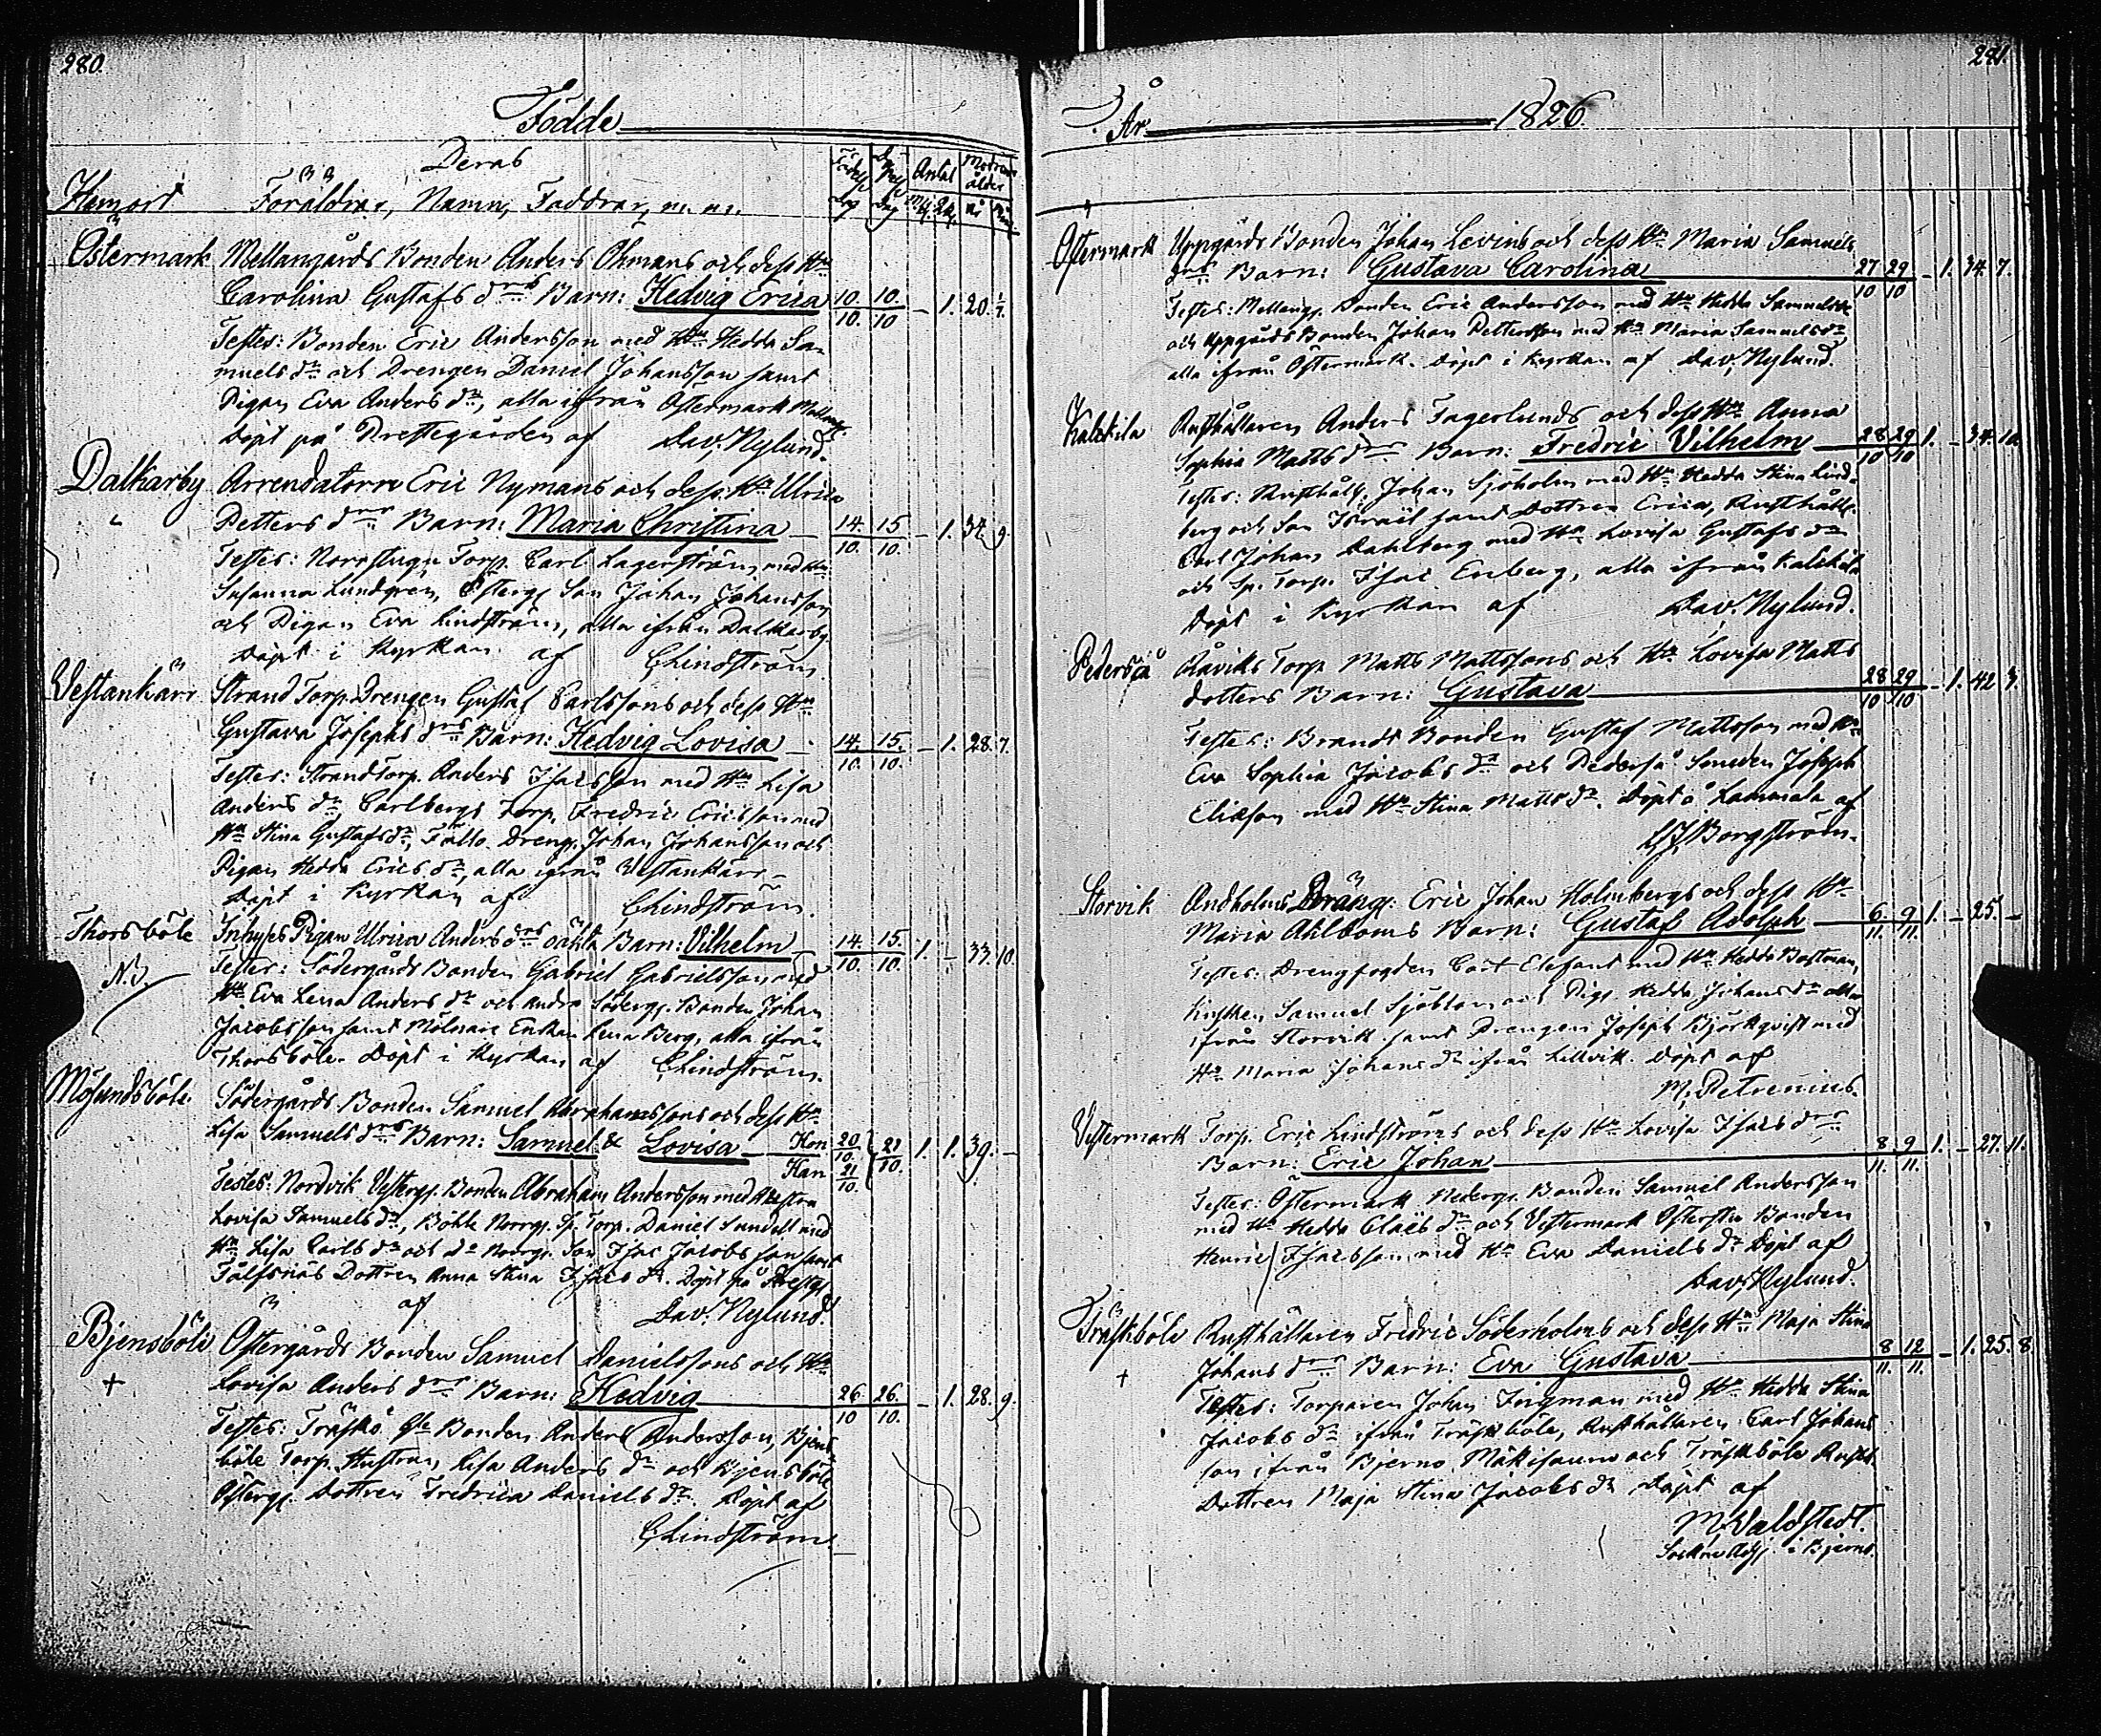 280.
Födde
Deras
Hemort Föräldrar, Namn, Faddrar, m. m. Födelse Dag Döpelse Dag Antal Mk. Qk. Modrens ålder År Mån
Östermark Mellangårds Bonden Anders Öhmans och dess Hu
Carolina Gustafs drs Barn: Hedvig Erica 10./10. 10./10 – 1. 20.
Testes: Bonden Eric Andersson med Hu Hedda Sa-
muels dr och Drengen Daniel Johansson samt
Pigan Eva Anders dr, alla ifrån Östermark
Döpt på Prestegården af Dav. Nylund.
Dalkarby Arrendatorn Eric Nymans och dess Hu Ulrica
Petters drs Barn: Maria Christina – 14./10. 15/10. – 1. 34. 9.
Testes: Norrstugu Torp. Carl Lagerström med Hu
Susanna Lundgren, Österg. Son Johan Johansson
och Pigan Eva Lindström, alla ifrån Dalkarby.
Döpt i Kyrkan af C. Lindström.
Vestankärr Strand Torp. Drengen Gustaf Carlssons och dess Hu
Gustava Josephs drs Barn: Hedvig Lovisa – 14./10. 15./10. – 1. 28. 7.
Testes: Strand Torp. Anders Isacsson med Hu Lisa
Anders dr Carlbergs Torp. Fredric Ericsson med
Hu Stina Gustafs dr, Dreng. Johan Johansson och
Pigan Hedda Erics dr, alla ifrån Vestankärr –
Döpt i Kyrkan af C. Lindström.
Thorsböle Inhyses Pigan Ulrica Anders drs oäkta Barn: Vilhelm – 14./10. 15./10. 1. – 33. 10.
Testes: Södergårds Bonden Gabriel Gabrielsson med
Hu Eva Lena Anders dr och andra Söderg. Bonden Johan
Jacobsson samt Mölnare Enkan Lena Berg, alla ifrån
Thorsböle. Döpt i Kyrkan af C. Lindström.
Mösundsböle Södergårds Bonden Samuel Abrahamssons och dess Hu
Lisa Samuels drs Barn: Samuel & Lovisa – Hon 20/10. 21/10. 1. 1. 39. –
Han 21/10.
Testes: Nordvik Vesterg. Bonden Abraham Andersson med Hustru
Lovisa Samuels dr, Böhle Norrg. Sp. Torp. Daniel Sundell med
Hu Lisa Carls dr och do Norrg. Son Isac Jacobsson samt
Dottren Anna Stina Isacs dr. Döpt på Prestg.
af Dav. Nylund.
Bjensböle Östergårds Bonden Samuel Danielssons och Hu
+ Lovisa Anders drs Barn: Hedvig 26./10 26./10. – 1. 28. 9.
Testes: Träskö Bonden Anders Andersson, Bjens-
böle Torp. Hustrun Lisa Anders dr och Bjensböle
Österg. Dottren Fredrica Daniels dr. Döpt af
C. Lindström.
281.
År 1826.
Östermark Uppgårds Bonden Johan Levins och dess Hu Maria Samuels
drs Barn: Gustava Carolina 27/10 29/10 – 1. 34. 7.
Testes: Mellang. Bonden Eric Andersson med Hu Hedda Samuels dr
och Uppgårds Bonden Johan Pettersson med Hu Maria Samuels dr
alla ifrån Östermark. Döpt i Kyrkan af Dav. Nylund.
Kalkila Rusthållaren Anders Fagerlunds och dess Hu Anna
Sophia Matts drs Barn: Fredric Vilhelm – 28/10 29/10 1. – 34. 10.
Testes: Rusthåll. Johan Sjöholm med Hu Hedda Stina Lind-
berg och Son Israel samt Dottren Erica, Rusthåll.
Carl Johan Dahlberg med Hu Lovisa Gustafs dr
och Sp. Torp. Isac Enberg, alla ifrån Kalkila
Döpt i Kyrkan af Dav. Nylund.
Pederså Råviks Torp. Matts Mattssons och Hu Lovisa Matts
dotters Barn: Gustava 28/10 29/10 – 1. 42 3.
Testes: Brands Bonden Gustaf Mattsson med Hu
Eva Sophia Jacobs dr och Pederså Smeden Joseph
Eliason med Hu Stina Matts dr. Döpt å Lammala af
Borgström.
Storvik Andholms Dräng. Eric Johan Holmbergs och dess Hu
Maria Ahlboms Barn: Gustaf Adolph – 6./11. 9/11. 1. – 25. –
Testes: Drengfogden Carl Elefant med Hu Hedda Bostman,
Kusken Samuel Sjöblom och Pig. Hedda Johans dr alla
ifrån Storvik samt Drengen Joseph Björkqvist med
Hu Maria Johans dr ifrån Lillvik. Döpt af
M. Petrenius.
Vestermark Torp. Eric Lindströms och dess Hu Lovisa Isacs drs
Barn: Eric Johan 8./11. 9/11. 1. – 27. 11.
Testes: Östermark Nederg. Bonden Samuel Andersson
med Hu Hedda Claës dr och Vestermark Österstu Bonden
Henric Isacsson med Hu Eva Daniels dr Döpt af
Dav. Nylund.
Träskböle Rusthållaren Fredric Söderholms och dess Hu Maja Stina
+ Johans drs Barn: Eva Gustava 8/11. 12/11. – 1. 25. 8.
Testes: Torparen Johan Ingman med Hu Hedda Stina
Jacobs dr ifrån Träskböle, Rusthållaren Carl Johans
son ifrån Bjerno Mäkisauru och Träskböle Rusth.
Dottren Maja Stina Jacobs dr Döpt af
M. Valdstedt.
Sockne Adj. i Bjerno.